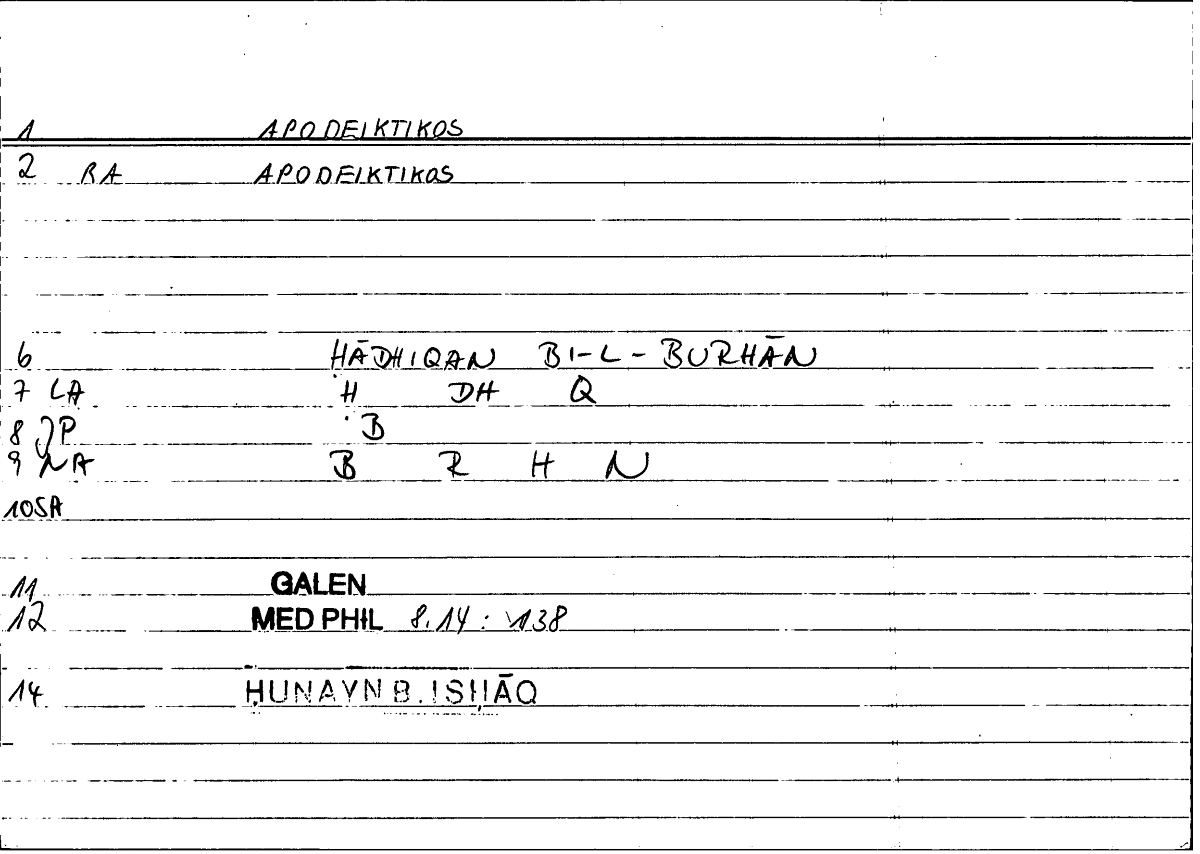 1 APODEIKTIKOS
2 RA APODEIKTIKOS
6 ḤĀDHIQAN BI-L-BURHĀN
7 LA Ḥ DH Q
8 JP B
9 NA B R H N
10 SA
11 GALEN
12 MED PHIL 8.14 : 138
14 ḤUNAYN B. ISḤĀQ